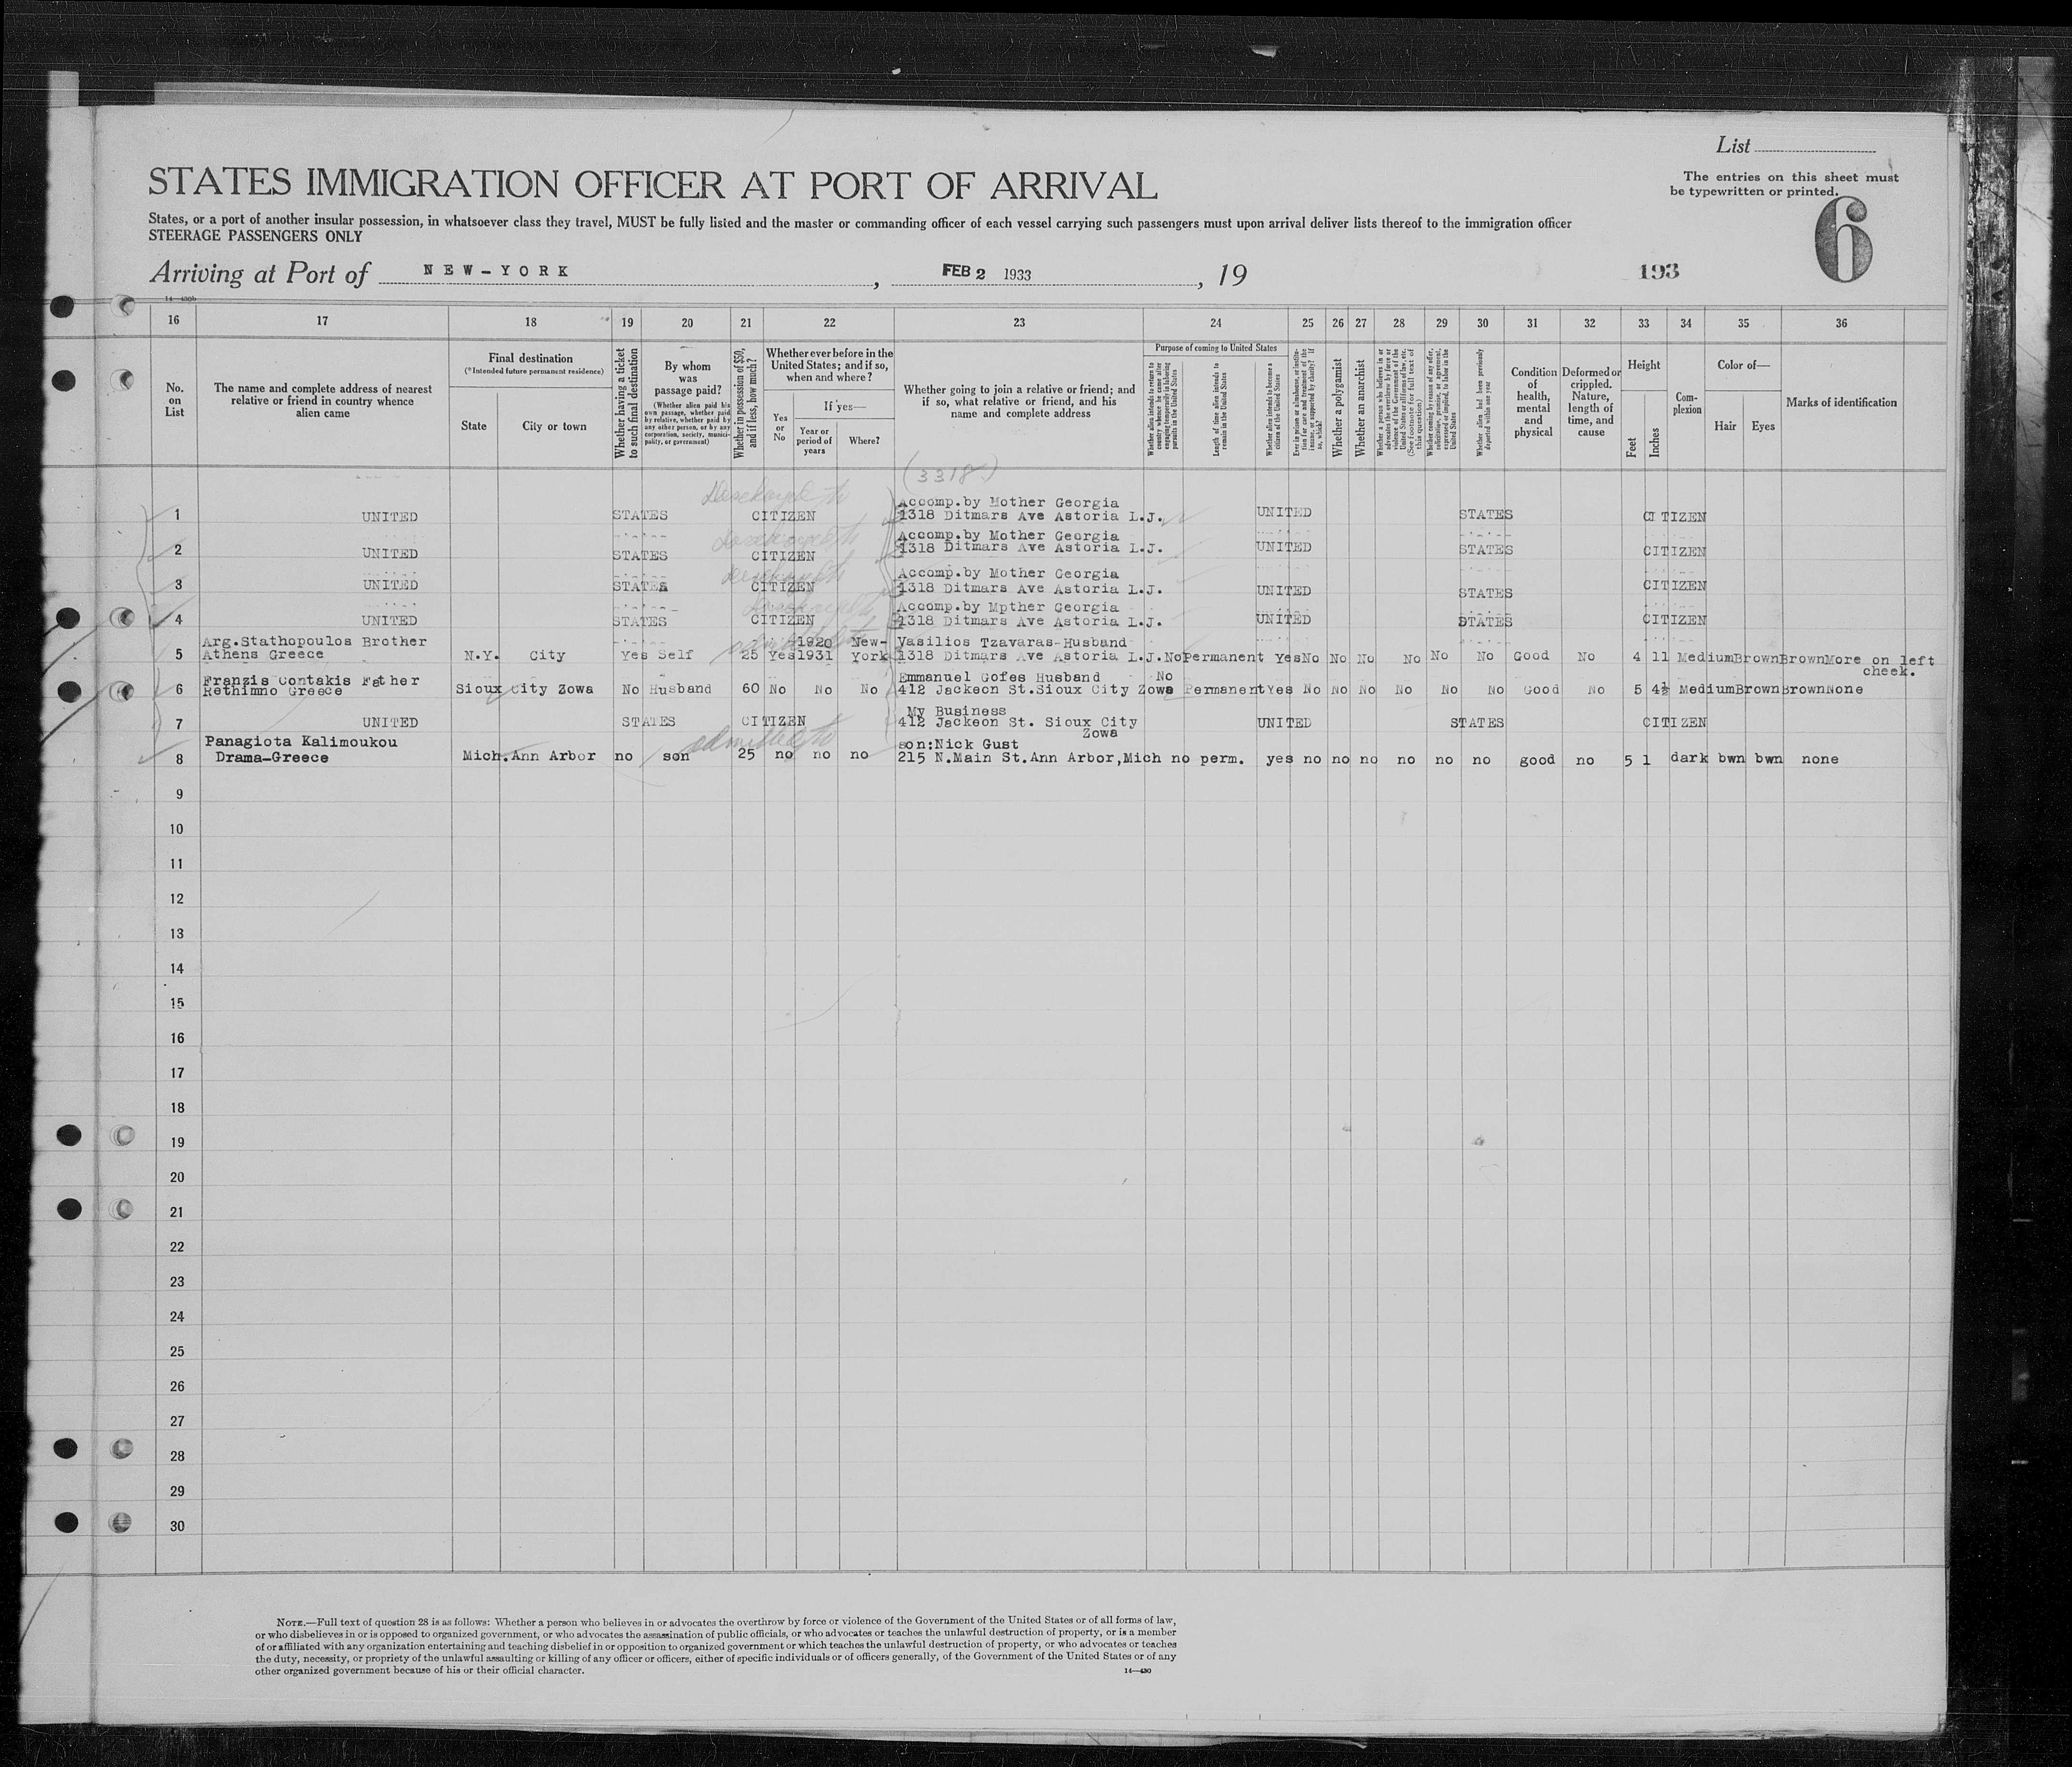 List
STATES IMMIGRATION OFFICER AT PORT OF ARRIVAL
The entries on this sheet must
be typewritten or printed.
6
States, or a port of another insular possession, in whatsoever class they travel, MUST be fully listed and the master or commanding officer of each vessel carrying such passengers must upon arrival deliver lists thereof to the immigration officer
STEERAGE PASSENGERS ONLY
Arriving at Port of NEW-YORK, FEB 2 1933, 19 193
14—430b
16 17 18 19 20 21 22 23 24 25 26 27 28 29 30 31 32 33 34 35 36
No. on List
The name and complete address of nearest relative or friend in country whence alien came
Final destination
(*Intended future permanent residence)
State
City or town
Whether having a ticket to such final destination
By whom was passage paid?
(Whether alien paid his own passage, whether paid by relative, whether paid by any other person, or by any corporation, society, municipality, or government)
Whether in possession of $50, and if less, how much?
Whether ever before in the United States; and if so, when and where?
Yes or No
If yes—
Year or period of years
Where?
Whether going to join a relative or friend; and if so, what relative or friend, and his name and complete address
Purpose of coming to United States
Whether alien intends to return to country whence he came after engaging temporarily in laboring pursuits in the United States
Length of time alien intends to remain in the United States
Whether alien intends to become a citizen of the United States
Ever in prison or almshouse, or institution for care and treatment of the insane, or supported by charity? If so, which?
Whether a polygamist
Whether an anarchist
Whether a person who believes in or advocates the overthrow by force or violence of the Government of the United States or all forms of law, etc. (See footnote for full text of this question)
Whether coming by reason of any offer, solicitation, promise, or agreement, expressed or implied, to labor in the United States
Whether alien had been previously deported within one year
Condition of health, mental and physical
Deformed or crippled. Nature, length of time, and cause
Height
Feet
Inches
Complexion
Color of—
Hair
Eyes
Marks of identification
(3318)
Accomp.by Mother Georgia
1 UNITED STATES CITIZEN 1318 Ditmars Ave Astoria L.J. UNITED STATES CITIZEN
Accomp.by Mother Georgia
2 UNITED STATES CITIZEN 1318 Ditmars Ave Astoria L.J. UNITED STATES CITIZEN
Accomp.by Mother Georgia
3 UNITED STATES CITIZEN 1318 Ditmars Ave Astoria L.J. UNITED STATES CITIZEN
Accomp.by Mpther Georgia
4 UNITED STATES CITIZEN 1318 Ditmars Ave Astoria L.J. UNITED STATES CITIZEN
Arg.Stathopoulos Brother 1920 New- Vasilios Tzavaras-Husband
5 Athens Greece N.Y. City Yes Self 25 Yes 1931 York 1318 Ditmars Ave Astoria L.J. No Permanent Yes No No No No No No Good No 4 11 Medium Brown Brown More on left
cheek.
Franzis Contakis Father Emmanuel Gofes Husband No
6 Rethimno Greece Sioux City Zowa No Husband 60 No No No 412 Jackeon St.Sioux City Zowa Permanent Yes No No No No No No Good No 5 4½ Medium Brown Brown None
My Business
7 UNITED STATES CITIZEN 412 Jackeon St. Sioux City UNITED STATES CITIZEN
Zowa
Panagiota Kalimoukou admitted son:Nick Gust
8 Drama-Greece Mich. Ann Arbor no son 25 no no no 215 N.Main St.Ann Arbor,Mich no perm. yes no no no no no no good no 5 1 dark bwn bwn none
9
10
11
12
13
14
15
16
17
18
19
20
21
22
23
24
25
26
27
28
29
30
NOTE.—Full text of question 28 is as follows: Whether a person who believes in or advocates the overthrow by force or violence of the Government of the United States or of all forms of law,
or who disbelieves in or is opposed to organized government, or who advocates the assassination of public officials, or who advocates or teaches the unlawful destruction of property, or is a member
of or affiliated with any organization entertaining and teaching disbelief in or opposition to organized government or which teaches the unlawful destruction of property, or who advocates or teaches
the duty, necessity, or propriety of the unlawful assaulting or killing of any officer or officers, either of specific individuals or of officers generally, of the Government of the United States or of any
other organized government because of his or their official character.
14—430